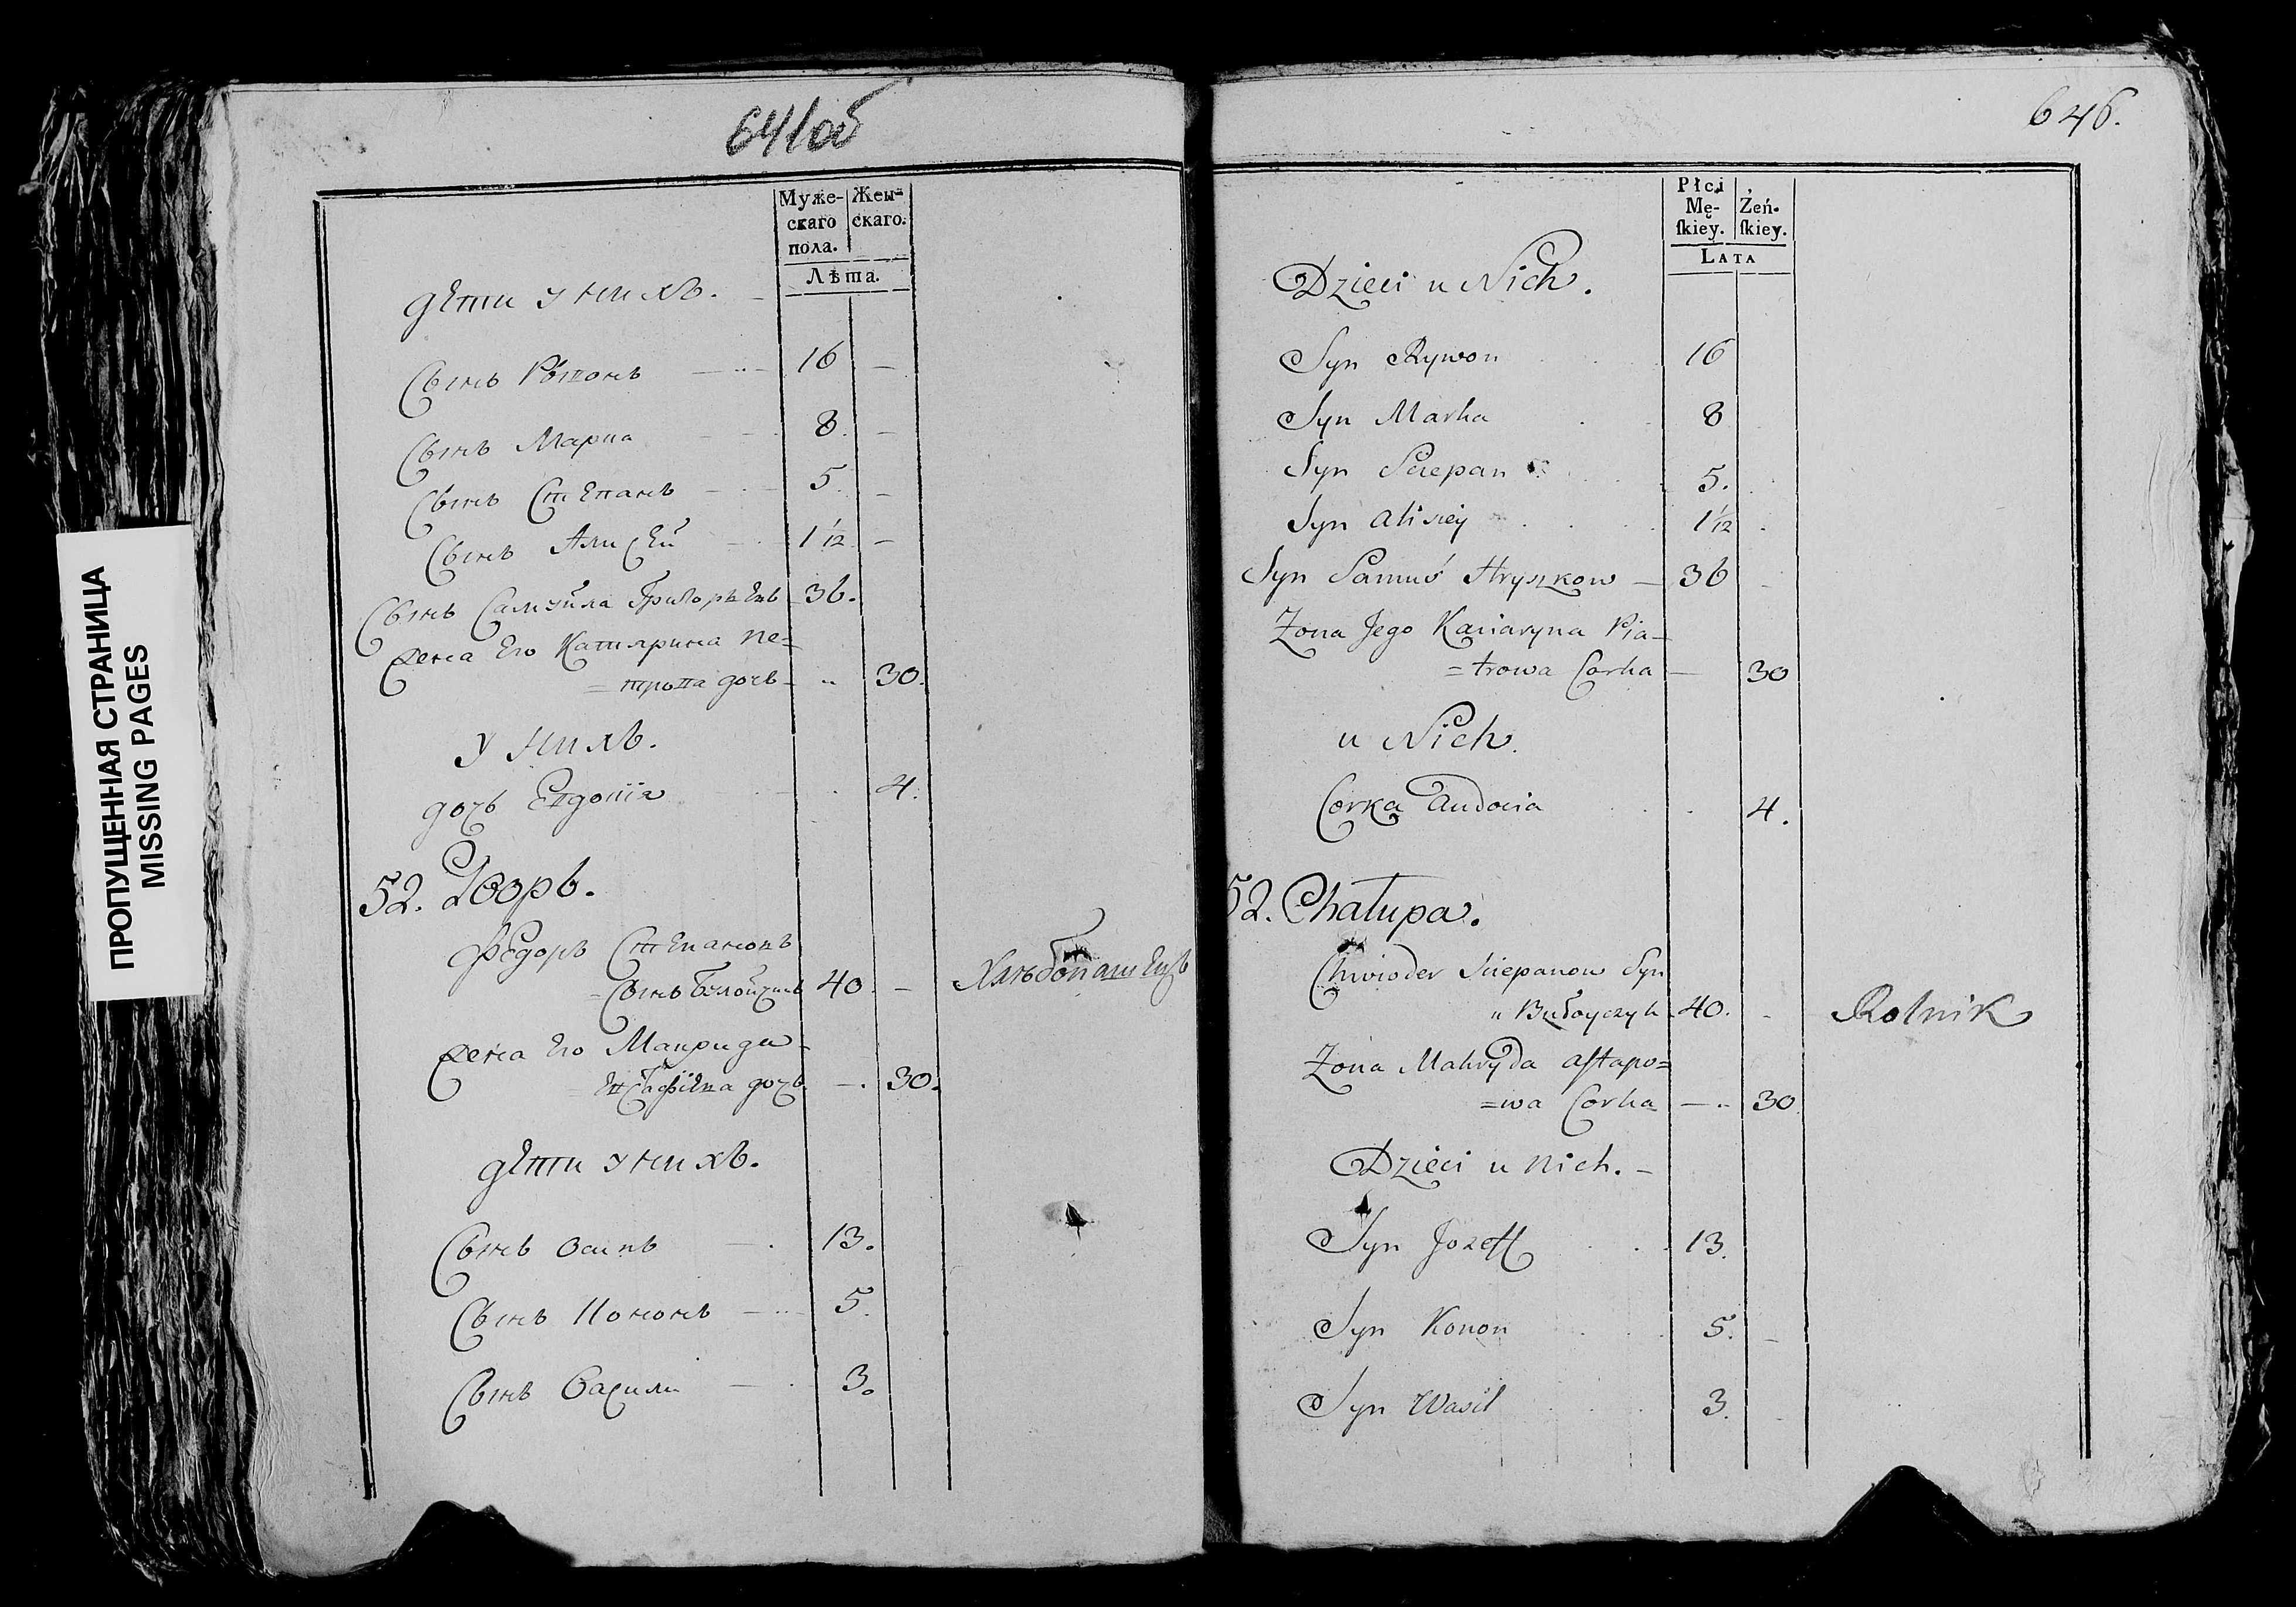 ПРОПУЩЕННАЯ СТРАНИЦА
MISSING PAGES
641об
Муже-
скаго
пола.
Жен-
скаго.
Лѣта.
дети у нихъ.
Сынъ Ривонъ 16 —
Сынъ Марка 8. —
Сынъ Степанъ 5. —
Сынъ Алисей 1 1/12 —
Сынъ Самуйла Григорьевъ 36.
Жена Его Катярина Пе-
=трова дочь — 30.
У нихъ.
дочь Евдокія 4.
52. Дворъ.
Федоръ Степановъ
=Сынъ 40. — Хлѣбопашецъ
Жена Его Маврида
=Евстафіева дочь — 30.
дети у нихъ.
Сынъ Осипъ 13.
Сынъ Кононъ 5.
Сынъ Васили 3.
646.
Płci
Mę-
ſkiey.
Żeń-
ſkiey.
LATA
Dzieci u Nich.
Syn Rywon 16
Syn Marka 8
Syn Sciepan 5.
Syn Alisiey 1 1/12
Syn Samuś Hryszkow — 36
Zona Jego Kaciaryna Pia-
=trowa Corka — 30
u Nich.
Corka Audocia 4.
52. Chałupa.
Chwioder Sciepanow Syn
" Bułoyczyk 40. — Rolnik
Zona Mahryda Aſtapo=
=wa Corka — 30
Dzieci u nich. —
Syn Jozeff 13.
Syn Konon 5. —
Syn Wasil 3.